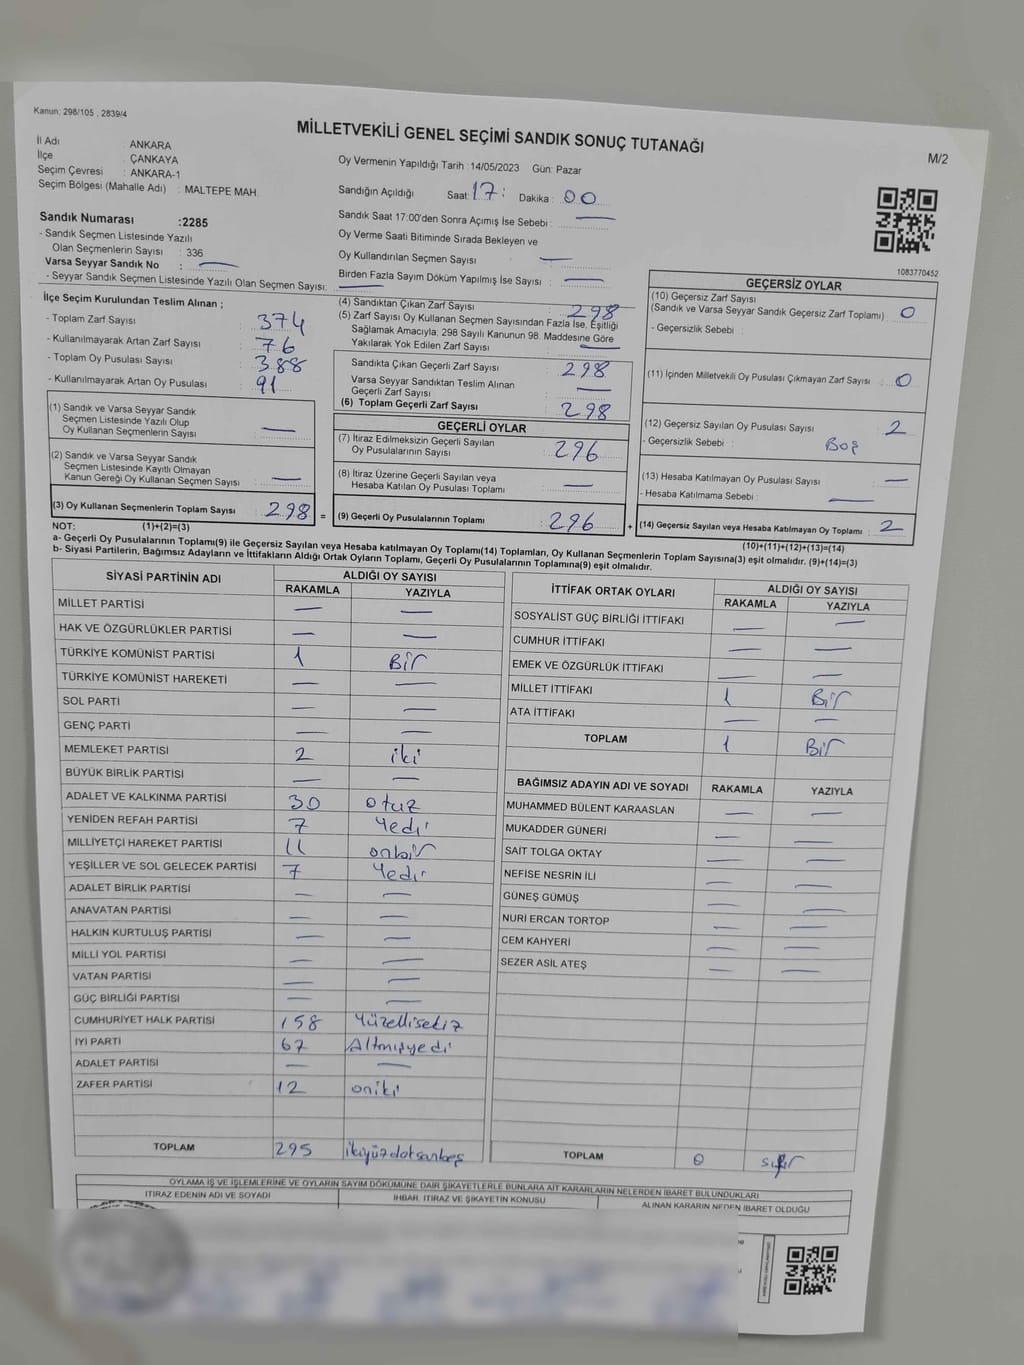 Kanun: 298/105 , 2839/4
MİLLETVEKİLİ GENEL SEÇİMİ SANDIK SONUÇ TUTANAĞI
M/2
İl Adı ANKARA
İlçe : ÇANKAYA
Seçim Çevresi : ANKARA-1
Seçim Bölgesi (Mahalle Adı) : MALTEPE MAH.
Sandık Numarası :2285
- Sandık Seçmen Listesinde Yazılı
Olan Seçmenlerin Sayısı : 336
Varsa Seyyar Sandık No : —
- Seyyar Sandık Seçmen Listesinde Yazılı Olan Seçmen Sayısı: —
Oy Vermenin Yapıldığı Tarih :14/05/2023 Gün: Pazar
Sandığın Açıldığı Saat: 17: Dakika : 00
Sandık Saat 17:00'den Sonra Açımış İse Sebebi : —
Oy Verme Saati Bitiminde Sırada Bekleyen ve
Oy Kullandırılan Seçmen Sayısı —
Birden Fazla Sayım Döküm Yapılmış İse Sayısı : —
1083770452
İlçe Seçim Kurulundan Teslim Alınan ;
- Toplam Zarf Sayısı : 374
- Kullanılmayarak Artan Zarf Sayısı : 76
- Toplam Oy Pusulası Sayısı : 388
- Kullanılmayarak Artan Oy Pusulası : 91
(1) Sandık ve Varsa Seyyar Sandık
Seçmen Listesinde Yazılı Olup
Oy Kullanan Seçmenlerin Sayısı : —
(2) Sandık ve Varsa Seyyar Sandık
Seçmen Listesinde Kayıtlı Olmayan
Kanun Gereği Oy Kullanan Seçmen Sayısı : —
(3) Oy Kullanan Seçmenlerin Toplam Sayısı : 298 =
(4) Sandıktan Çıkan Zarf Sayısı : 298
(5) Zarf Sayısı Oy Kullanan Seçmen Sayısından Fazla İse, Eşitliği
Sağlamak Amacıyla, 298 Sayılı Kanunun 98. Maddesine Göre
Yakılarak Yok Edilen Zarf Sayısı : —
Sandıkta Çıkan Geçerli Zarf Sayısı : 298
Varsa Seyyar Sandıktan Teslim Alınan
Geçerli Zarf Sayısı : —
(6) Toplam Geçerli Zarf Sayısı : 298
GEÇERLİ OYLAR
(7) İtiraz Edilmeksizin Geçerli Sayılan
Oy Pusulalarının Sayısı : 296
(8) İtiraz Üzerine Geçerli Sayılan veya
Hesaba Katılan Oy Pusulası Toplamı : —
(9) Geçerli Oy Pusulalarının Toplamı : 296 +
GEÇERSİZ OYLAR
(10) Geçersiz Zarf Sayısı
(Sandık ve Varsa Seyyar Sandık Geçersiz Zarf Toplamı) : 0
- Geçersizlik Sebebi :
(11) İçinden Milletvekili Oy Pusulası Çıkmayan Zarf Sayısı : 0
(12) Geçersiz Sayılan Oy Pusulası Sayısı : 2
- Geçersizlik Sebebi : Boş
(13) Hesaba Katılmayan Oy Pusulası Sayısı : —
- Hesaba Katılmama Sebebi : —
(14) Geçersiz Sayılan veya Hesaba Katılmayan Oy Toplamı : 2
NOT: (1)+(2)=(3)
(10)+(11)+(12)+(13)=(14)
a- Geçerli Oy Pusulalarının Toplamı(9) ile Geçersiz Sayılan veya Hesaba katılmayan Oy Toplamı(14) Toplamları, Oy Kullanan Seçmenlerin Toplam Sayısına(3) eşit olmalıdır. (9)+(14)=(3)
b- Siyasi Partilerin, Bağımsız Adayların ve İttifakların Aldığı Ortak Oyların Toplamı, Geçerli Oy Pusulalarının Toplamına(9) eşit olmalıdır.
SİYASİ PARTİNİN ADI ALDIĞI OY SAYISI
RAKAMLA YAZIYLA
MİLLET PARTİSİ — —
HAK VE ÖZGÜRLÜKLER PARTİSİ — —
TÜRKİYE KOMÜNİST PARTİSİ 1 Bir
TÜRKİYE KOMÜNİST HAREKETİ — —
SOL PARTİ — —
GENÇ PARTİ — —
MEMLEKET PARTİSİ 2 iki
BÜYÜK BİRLİK PARTİSİ — —
ADALET VE KALKINMA PARTİSİ 30 otuz
YENİDEN REFAH PARTİSİ 7 Yedi
MİLLİYETÇİ HAREKET PARTİSİ 11 onbir
YEŞİLLER VE SOL GELECEK PARTİSİ 7 Yedi
ADALET BİRLİK PARTİSİ — —
ANAVATAN PARTİSİ — —
HALKIN KURTULUŞ PARTİSİ — —
MİLLİ YOL PARTİSİ — —
VATAN PARTİSİ — —
GÜÇ BİRLİĞİ PARTİSİ — —
CUMHURİYET HALK PARTİSİ 158 Yüzellisekiz
İYİ PARTİ 67 Altmışyedi
ADALET PARTİSİ — —
ZAFER PARTİSİ 12 oniki
TOPLAM 295 ikiyüzdoksanbeş
İTTİFAK ORTAK OYLARI ALDIĞI OY SAYISI
RAKAMLA YAZIYLA
SOSYALİST GÜÇ BİRLİĞİ İTTİFAKI — —
CUMHUR İTTİFAKI — —
EMEK VE ÖZGÜRLÜK İTTİFAKI — —
MİLLET İTTİFAKI 1 Bir
ATA İTTİFAKI — —
TOPLAM 1 Bir
BAĞIMSIZ ADAYIN ADI VE SOYADI RAKAMLA YAZIYLA
MUHAMMED BÜLENT KARAASLAN — —
MUKADDER GÜNERİ — —
SAİT TOLGA OKTAY — —
NEFİSE NESRİN İLİ — —
GÜNEŞ GÜMÜŞ — —
NURİ ERCAN TORTOP — —
CEM KAHYERİ — —
SEZER ASİL ATEŞ — —
TOPLAM 0 sıfır
OYLAMA İŞ VE İŞLEMLERİNE VE OYLARIN SAYIM DÖKÜMÜNE DAİR ŞİKAYETLERLE BUNLARA AİT KARARLARIN NELERDEN İBARET BULUNDUKLARI
İTİRAZ EDENİN ADI VE SOYADI İHBAR, İTİRAZ VE ŞİKAYETİN KONUSU ALINAN KARARIN NEDEN İBARET OLDUĞU